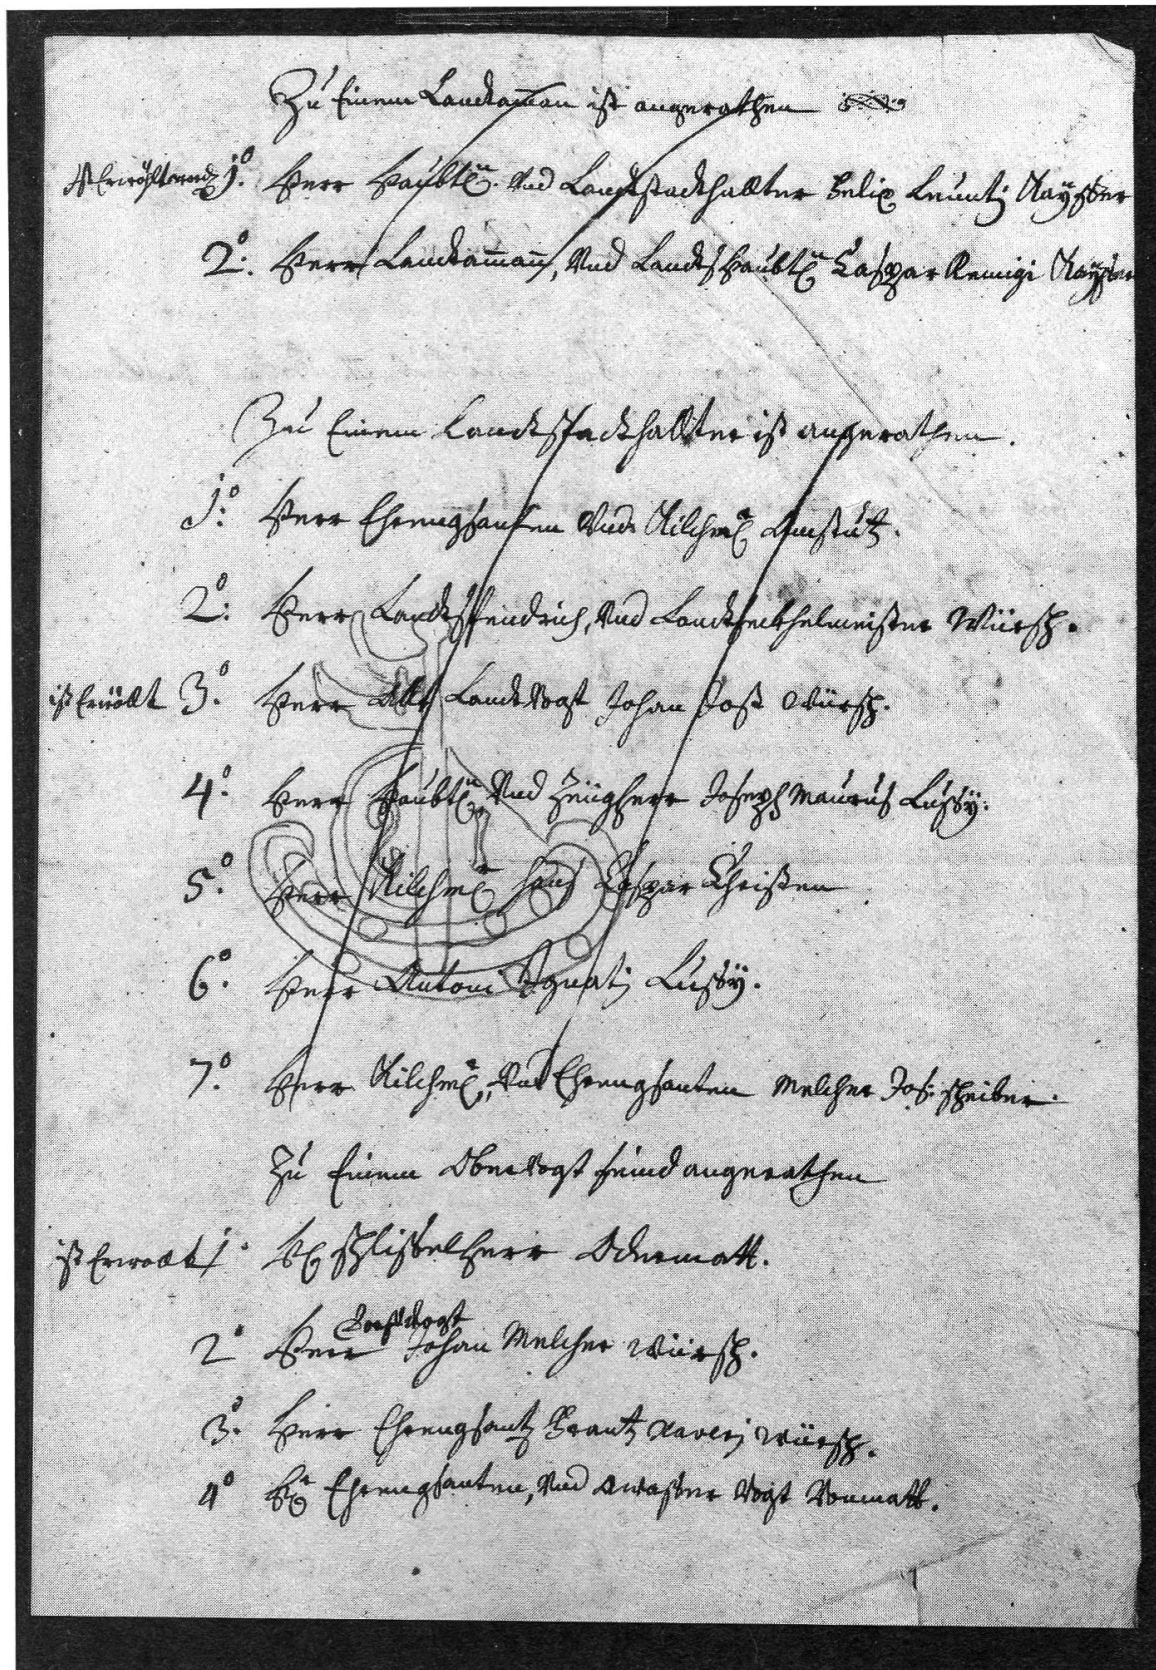 Zu Einem Landtaman ist angerathen
ist Erwöhlt 1º. Herr Haubtm. Vnd Landtstadthallter Felix Leuntj Kayser
2º. Herr Landtammann, Vnd Landtshaubtm Caspar Remigi Kayser
Zu Einem Landtstadthallter ist angerathen.
1º. Herr Ehrengsanten Vnd Kilchmr Amstutz.
2º. Herr Landtsfendrich, Vnd Landtseckhelmeister Würsch.
ist Erwölt 3º. Herr Alt Landtvogt Johan Jost Würsch.
4º. Herr Haubtm Vnd Zeügherr Joseph Maurus Lussÿ.
5º. Herr Kilchmr Hans Caspar Christen
6º. Herr Antoni Ignatj Lussÿ.
7º. Herr Kilchmr, Vnd Ehrengsanten Melcher Jos: scheiber.
Zu Einem Obervogt seind angerathen
ist Erwölt 1. Hr schlisselherr Odermatt.
2º Herr Johan Melcher Würsch.
3º. Herr Ehrengsantz Frantz Xaverj Würsch.
4º Hr Ehrengsanten, Vnd Vogt Vonmatt.